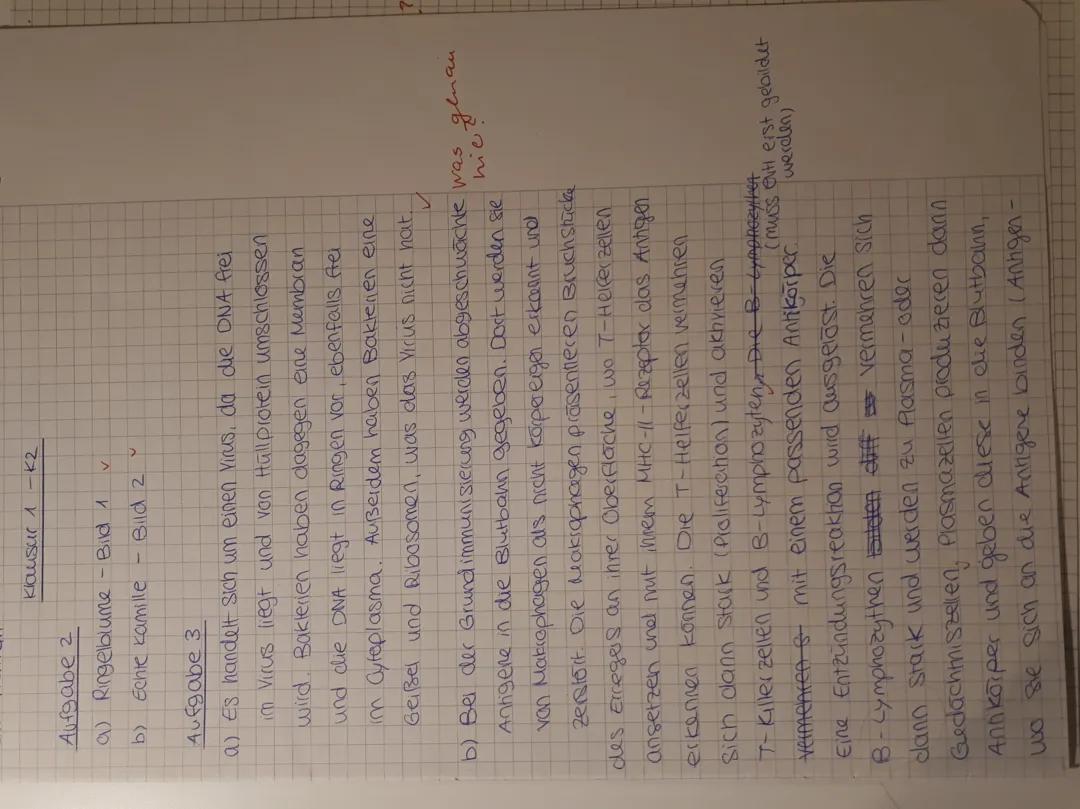 Klausur 1 - K2
Aufgabe 2
a) Ringelblume - Bild 1 ✓
b) Echte Kamille - Bild 2 ✓
Aufgabe 3
a) Es handelt sich um einen Virus, da die DNA frei
im Virus liegt und von Hüllprotein umschlossen
wird. Bakterien haben dagegen eine Membran
und die DNA liegt in Ringen vor, ebenfalls frei
im Cytoplasma. Außerdem haben Bakterien eine
Geißel und Ribosomen, was das Virus nicht hat. ✓
b) Bei der Grundimmunisierung werden abgeschwächte
was genau
hie?
Antigene in die Blutbahn gegeben. Dort werden sie
von Makrophagen als nicht körpereigen erkannt und
zerstört. Die Makrophagen präsentieren Bruchstücke
des Erregers an ihrer Oberfläche, wo T-Helferzellen
ansetzen und mit ihrem MHC-II-Rezeptor das Antigen
erkennen können. Die T-Helferzellen vermehren
sich dann stark (Proliferation) und aktivieren
T-Killerzellen und B-Lymphozyten. Die B-Lymphozyten
(muss evtl erst gebildet
werden)
vermehren s mit einem passenden Antikörper.
Eine Entzündungsreaktion wird ausgelöst. Die
B-Lymphozythen bilden diff vermehren sich
dann stark und werden zu Plasma- oder
Gedächtniszellen, Plasmazellen produzieren dann
Antikörper und geben diese in die Blutbahn,
wo sie sich an die Antigene binden (Antigen-